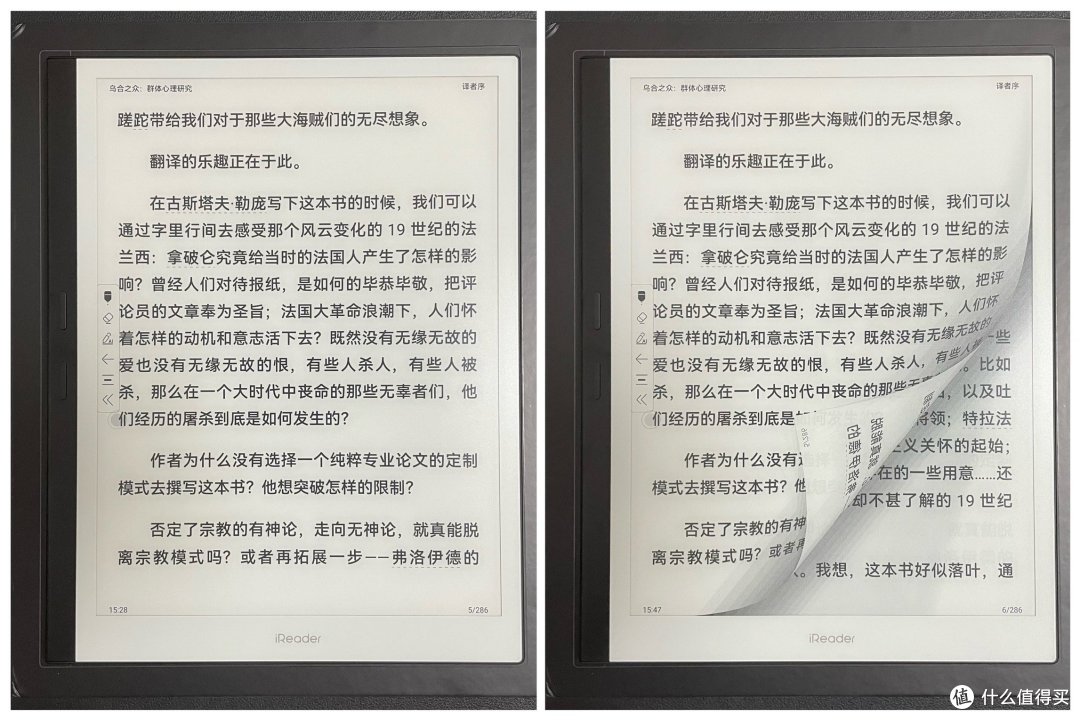 乌合之众：群体心理研究
译者序
蹉跎带给我们对于那些大海贼们的无尽想象。
翻译的乐趣正在于此。
在古斯塔夫·勒庞写下这本书的时候，我们可以
通过字里行间去感受那个风云变化的 19 世纪的法
兰西：拿破仑究竟给当时的法国人产生了怎样的影
响？曾经人们对待报纸，是如何的毕恭毕敬，把评
论员的文章奉为圣旨；法国大革命浪潮下，人们怀
着怎样的动机和意志活下去？既然没有无缘无故的
爱也没有无缘无故的恨，有些人杀人，有些人被
杀，那么在一个大时代中丧命的那些无辜者们，他
们经历的屠杀到底是如何发生的？
作者为什么没有选择一个纯粹专业论文的定制
模式去撰写这本书？他想突破怎样的限制？
否定了宗教的有神论，走向无神论，就真能脱
离宗教模式吗？或者再拓展一步——弗洛伊德的
15:28
5/286
iReader
乌合之众：群体心理研究
译者序
蹉跎带给我们对于那些大海贼们的无尽想象。
翻译的乐趣正在于此。
在古斯塔夫·勒庞写下这本书的时候，我们可以
通过字里行间去感受那个风云变化的 19 世纪的法
兰西：拿破仑究竟给当时的法国人产生了怎样的影
响？曾经人们对待报纸，是如何的毕恭毕敬，把评
论员的文章奉为圣旨；法国大革命浪潮下，人们怀
着怎样的动机和意志活下去？既然没有无缘无故的
些
爱也没有无缘无故的恨，有些人杀人，有些人被
。比如
杀，那么在一个大时代中丧命的那些无辜
，以及吐
们经历的屠杀到底是
将领；特拉法
主义关怀的起始；
作者为什么没有选
在的一些用意……还
模式去撰写这本书？他
却不甚了解的 19 世纪
否定了宗教的有神
离宗教模式吗？或者再
。我想，这本书好似落叶，通
15:47
6/286
iReader
值 什么值得买